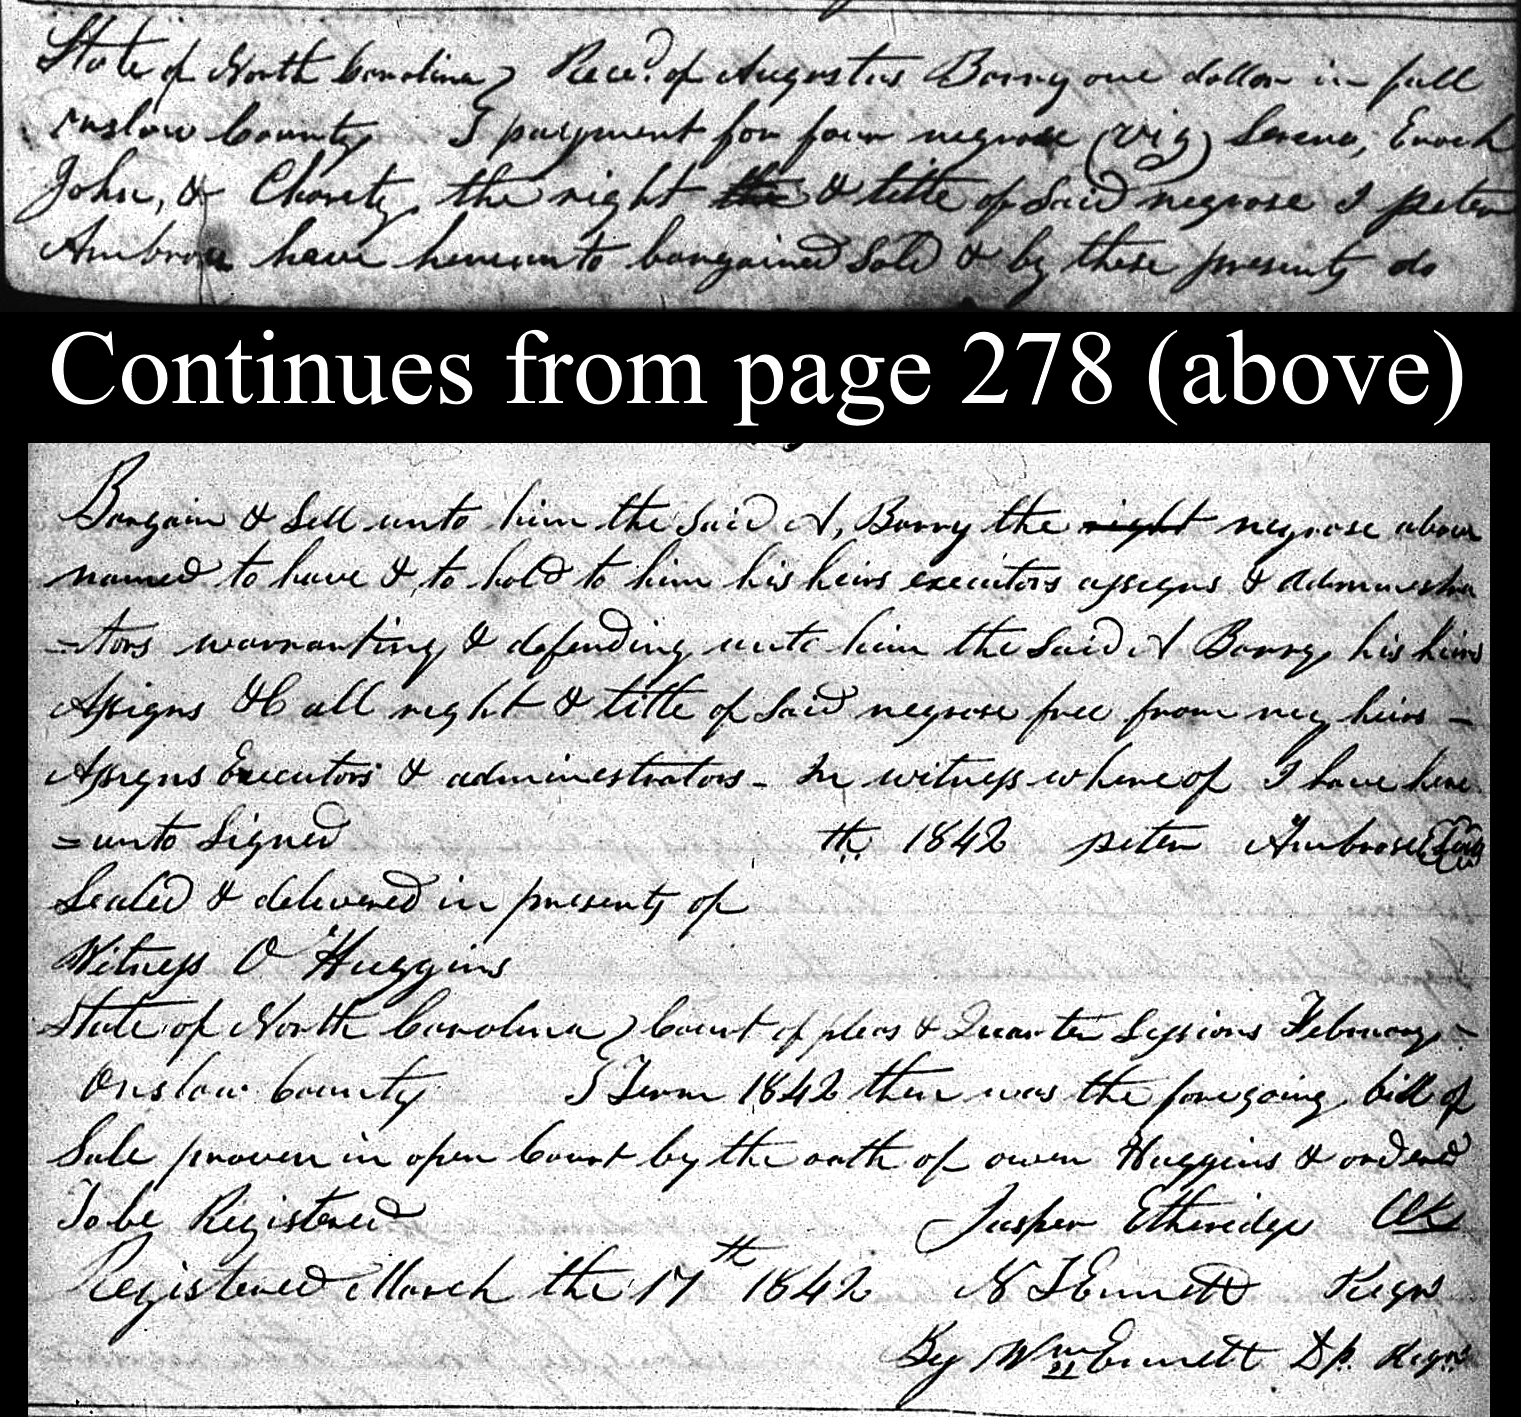 State of North Carolina } Recd. of Augustus Barry one dollar in full
onslow County } payment for four negrose (viz) Serena, Enoch
John, & Charety, the right the & title of Said negrose I peter
Ambrose have hereunto bargained Sold & by these presents do
Continues from page 278 (above)
Bargain & Sell unto him the Said A, Barry the right negrose above
named to have & to hold to him his heirs executors assigns & administra
=tors warranting & defending unto him the Said A Barry, his heirs
Assigns &C all right & title of Said negrose free from my heirs –
Assigns Executors & administrators – In witness whereof I have here
=unto Signed th. 1842 peter Ambrose Seal
Sealed & delivered in presents of
Witness O Huggins
State of North Carolina } Court of pleas & Quarter Sessions February –
Onslow County } Term 1842 then was the foregoing bill of
Sale proven in open Court by the oath of owen Huggins & ordered
To be Registered Jasper Etheridge Clk
Registered March the 17th 1842 N T Ennett Regr
By Wm Ennett Dp. Regr